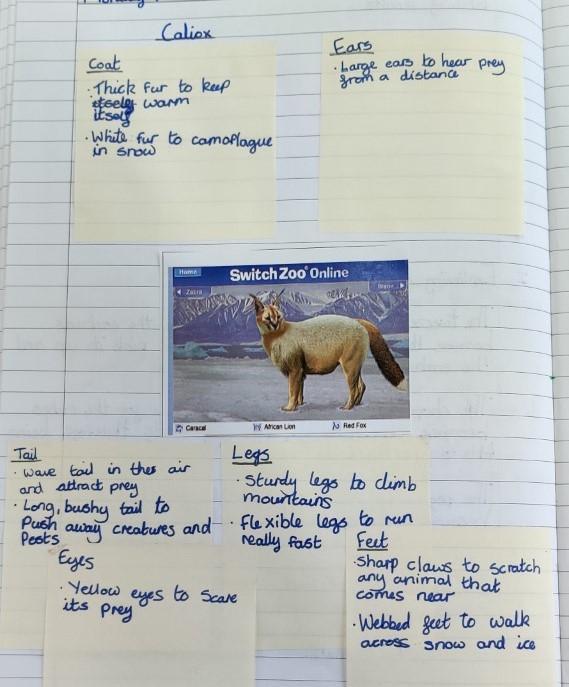 Caliox
Coat
· Thick fur to keep
itself warm
itself
· White fur to camoflague
in snow
Ears
· Large ears to hear prey
from a distance
Home
Switch Zoo Online
Zebra
Caracal
African Lion
Red Fox
Tail
· wave tail in the air
and attract prey
· Long, bushy tail to
Push away creatures and
Pests
Legs
· Sturdy legs to climb
mountains
· Flexible legs to run
really fast
Eyes
· Yellow eyes to scare
its prey
Feet
· Sharp claws to scratch
any animal that
comes near
· Webbed feet to walk
across snow and ice